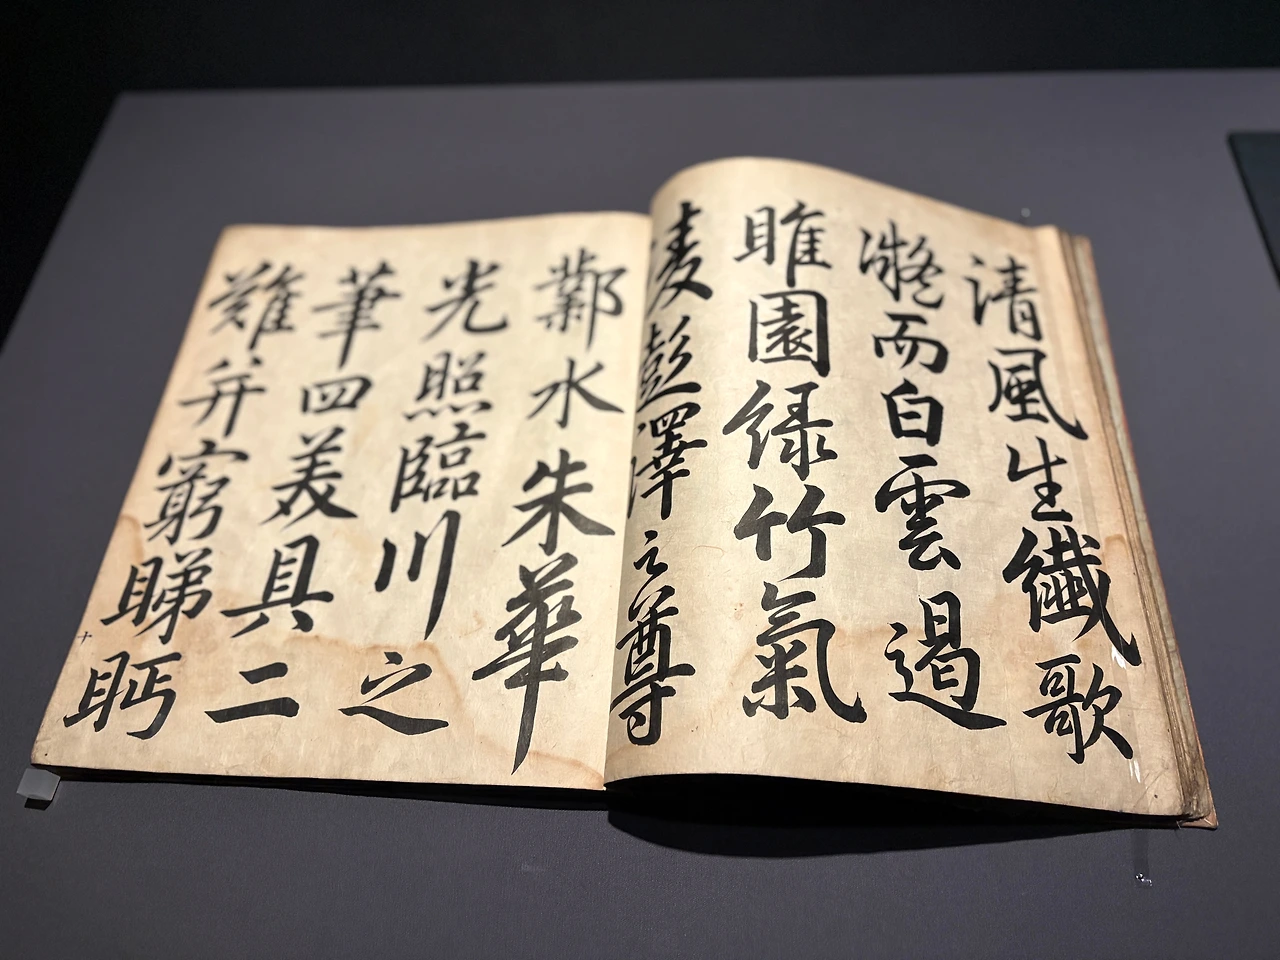 清風生纖歌
凝而白雲遏
睢園緑竹氣
凌彭澤之尊
鄴水朱華
光照臨川之
筆四美具二
難并窮睇眄
十